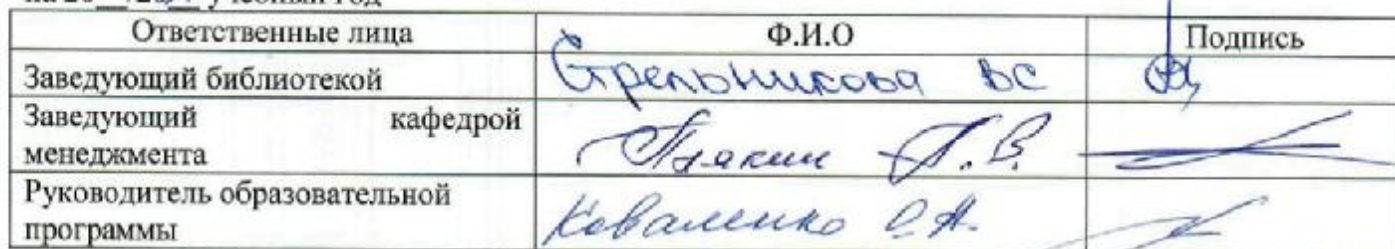 учебный год
Ответственные лица Ф.И.О Подпись
Заведующий библиотекой Стрельникова ВС
Заведующий кафедрой
менеджмента П.В.
Руководитель образовательной
программы Коваленко С.А.